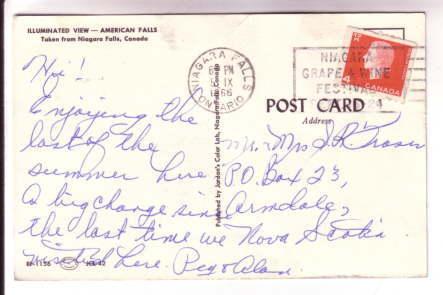 ILLUMINATED VIEW — AMERICAN FALLS
Taken from Niagara Falls, Canada
Hi!
Enjoying the
last of the
summer here
A big change since
the last time we
visited here. Peg & Alan.
NIAGARA FALLS
PM
IX
1966
ONTARIO
NIAGARA
GRAPE & WINE
FESTIVAL
24
CANADA
POST CARD
Address
Mr. & Mrs S.R. Fraser
P.O. Box 23,
Armdale,
Nova Scotia
Published by Jordan's Color Lab, Niagara Falls, Canada